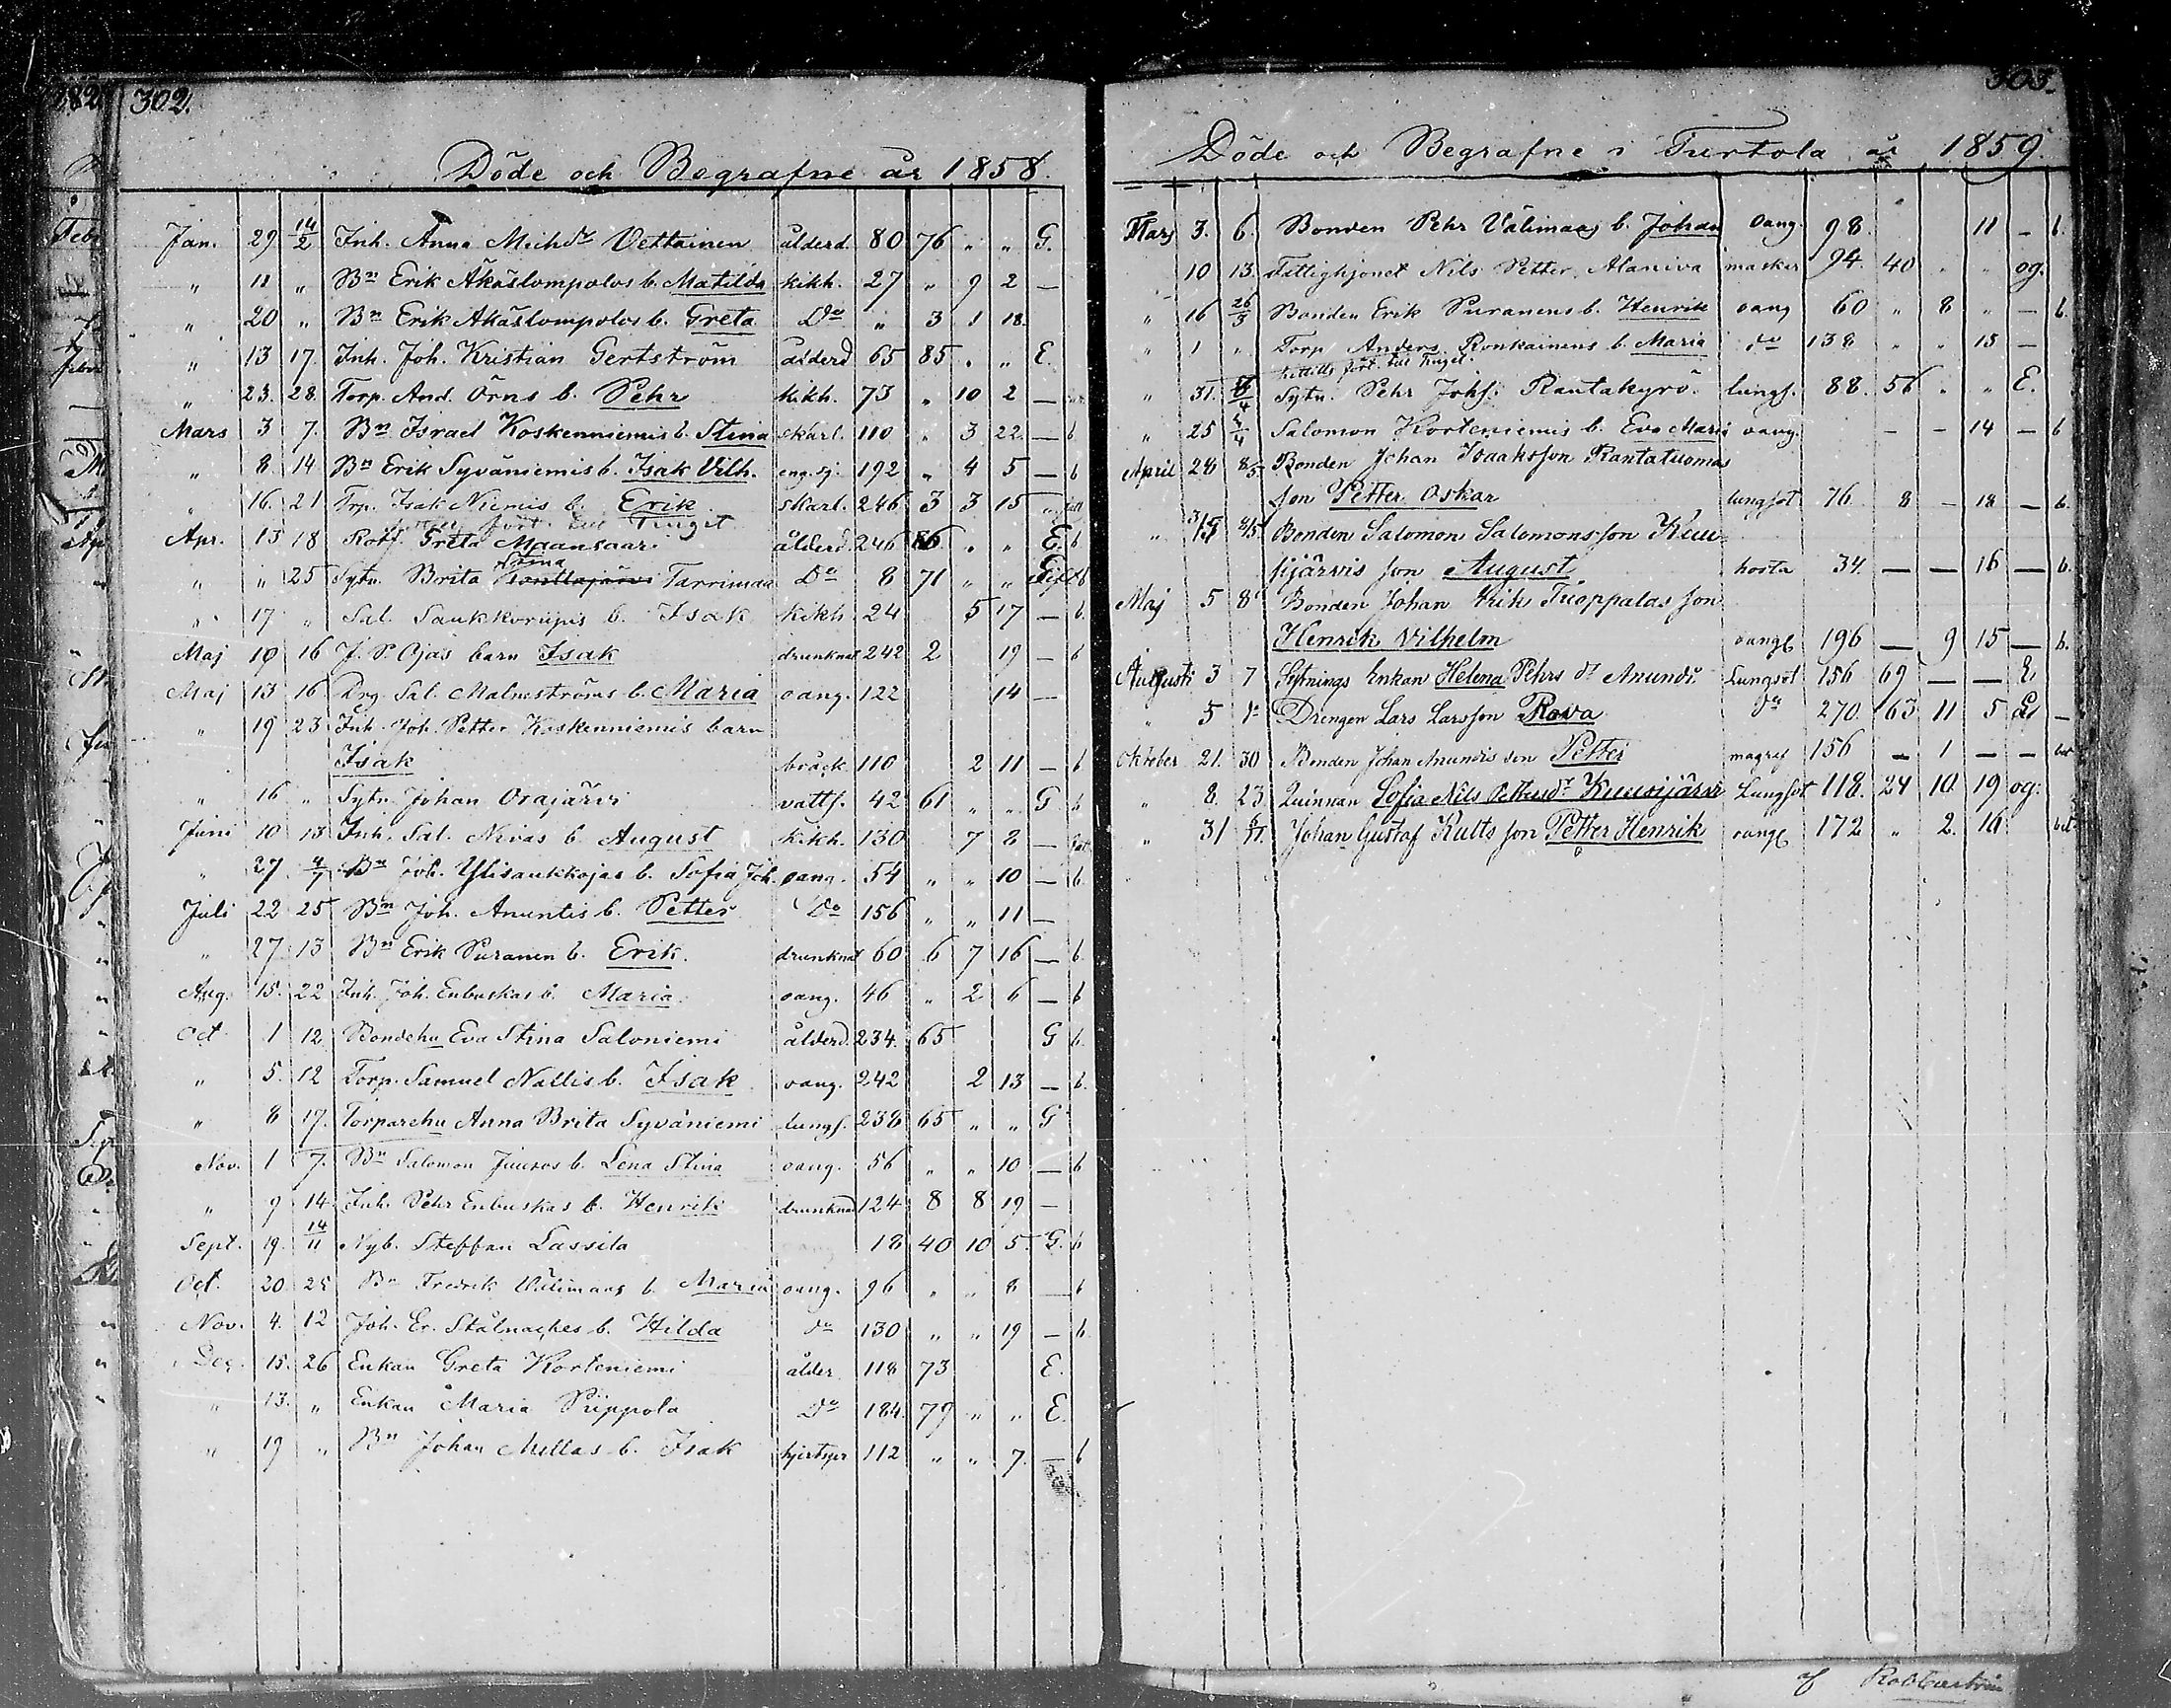 302.
Döde och Begrafne år 1858.
Jan. 29 14/2 Inh. Anna Michdr Vettainen ålderd. 80 76 " " G.
" 11 " Bn Erik Äkäslompolos b. Matilda kikh. 27 " 9 2 —
" 20 " Bn Erik Äkäslompolos b. Greta Do " 3 1 18.
" 13 17. Inh. Joh. Kristian Gertström ålderd 65 85 " " E.
" 23. 28. Torp. And. Örns b. Pehr kikh. 73 " 10 2 —
Mars 3 7. Bn Israel Koskenniemis b. Stina skarl. 110 " 3 22. — b
" 8. 14 Bn Erik Syväniemis b. Isak Vilh. eng. sj. 192 " 4 5 — b
" 16. 21 Trp. Isak Niemis b. Erik skarl. 246 3 3 15
fört. till Tinget
Apr. 13 18 Rotf. Greta Maansaari ålderd. 246 86 " " E. b
Stina
" " 25 Sytn. Brita Kontlajärvi Tarrimaa Do 8 71 " "
" 17 " Sal. Saukkoriipis b. Isak kikh 24 5 17 — b.
Maj 10 16 J. P. Ojas barn Isak drunknat 242 2 19 — b
Maj 13 16 Drg. Sal. Malmströms b. Maria oang. 122 14 —
" 19 23 Inh. Joh. Petter Koskenniemis barn
Isak bråck 110 2 11 — b
" 16 " Sytn. Johan Orajärvi vatts. 42 61 " " G b
Juni 10 13 Inh. Sal. Nivas b. August kikh. 130 7 8 —
" 27. 4/7 Bn Joh. Ylisaukkojas b. Sofia Joh. oang. 54 " " 10 — b.
Juli 22 25 Bn Joh. Anuntis b. Petter Do 156 " " 11 —
" 27 13 Bn Erik Puranen b. Erik. drunknat 60 6 7 16 — b.
Aug. 15. 22 Inh. Joh. Enbuskas b. Maria oang. 46 " 2 6 — b
Oct 1 12 Bondehu Eva Stina Saloniemi ålderd. 234. 65 G b.
" 5. 12 Torp. Samuel Nallis b. Isak oang. 242 2 13 — b.
" 8 17. Torparehu Anna Brita Syväniemi lungs. 238 65 " " G
Nov. 1 7. Bn Salomon Juusos b. Lena Stina oang. 56 " " 10 — b
" 9 14 Inh. Pehr Enbuskas b. Henrik drunknad 124 8 8 19 —
Sept. 19. 14/11 Nyb. Steffan Lassila 18 40 10 5. G. b
Oct. 20. 25 Bn Fredrik Välimaas b. Maria oang. 96 " " 8 — b
Nov. 4. 12 Joh. Er. Stålnackes b. Hilda do 130 " " 19 — b.
Dec. 15. 26 Enkan Greta Korteniemi ålder 118 73 E.
" 13. " Enkan Maria Piippola Do 184. 79 " " E.
" 19 " Bn Johan Mellas b. Isak 112 " " 7. — b
303.
Döde och Begrafne i Turtola år 1859.
Mars 3. 6. Bonden Pehr Välimaas b. Johan oang. 98. 11 — b.
" 10 13. Fattighjonet Nils Petter Alaniva maskar 94. 40 " " og.
" 16 26/3 Bonden Erik Puranens b. Henrik oang 60 " 8 " — b.
" 1 " Torp Anders Ronkainens b. Maria do 138 " " 13 —
fört. till Tinget
" 31. Sytn. Pehr Johs. Rantakyrö lungs. 88. 56 " " E.
" 25 4/4 Salomon Korteniemis b. Eva Maria oang. — — 14 — b
April 28 8/5 Bonden Johan Isaaksson Rantatuomas
son Petter Oskar lungsot 76. 8 — 18 — b.
" Bonden Salomon Salomonsson Kuu-
sijärvis son August hosta 34. — — 16 — b.
Maj 5 8 Bonden Johan Erik Tuoppalas son
Henrik Vilhelm oang 196 — 9 15 — b.
Augusti 3 7 Sytnings Enkan Helena Pehrs dr Anundi Lungsot 156 69 — — E
" 5 Drengen Lars Larsson Rova do 270. 63 11 5 —
Oktober 21. 30 Bonden Johan Anundis son Petter 156 — 1 — —
" 8. 23 Quinnan Sofia Nils Pettersdr Kuusijärvi Lungsot 118. 24 10. 19 og.
" 31 Johan Gustaf Kults son Petter Henrik oang 172 " 2. 16